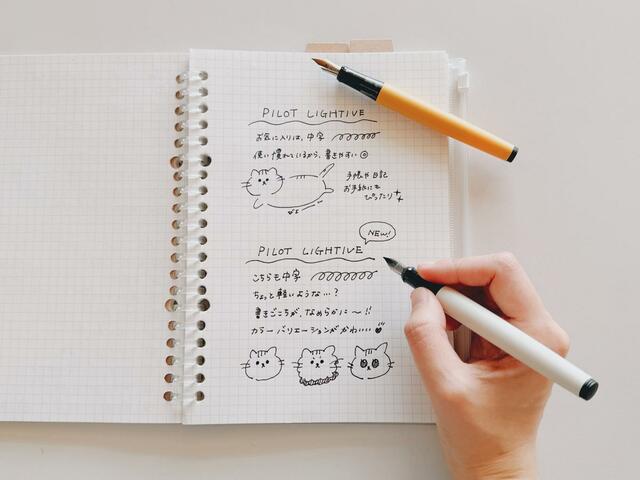 PILOT LIGHTIVE
お気に入りは、中字
使い慣れているから、書きやすい
手帳や日記
お手紙にも
ぴったり
NEW!
PILOT LIGHTIVE
こちらも中字
ちょっと軽いような…?
書きごこちが、なめらかに〜!!
カラーバリエーションがかわいい